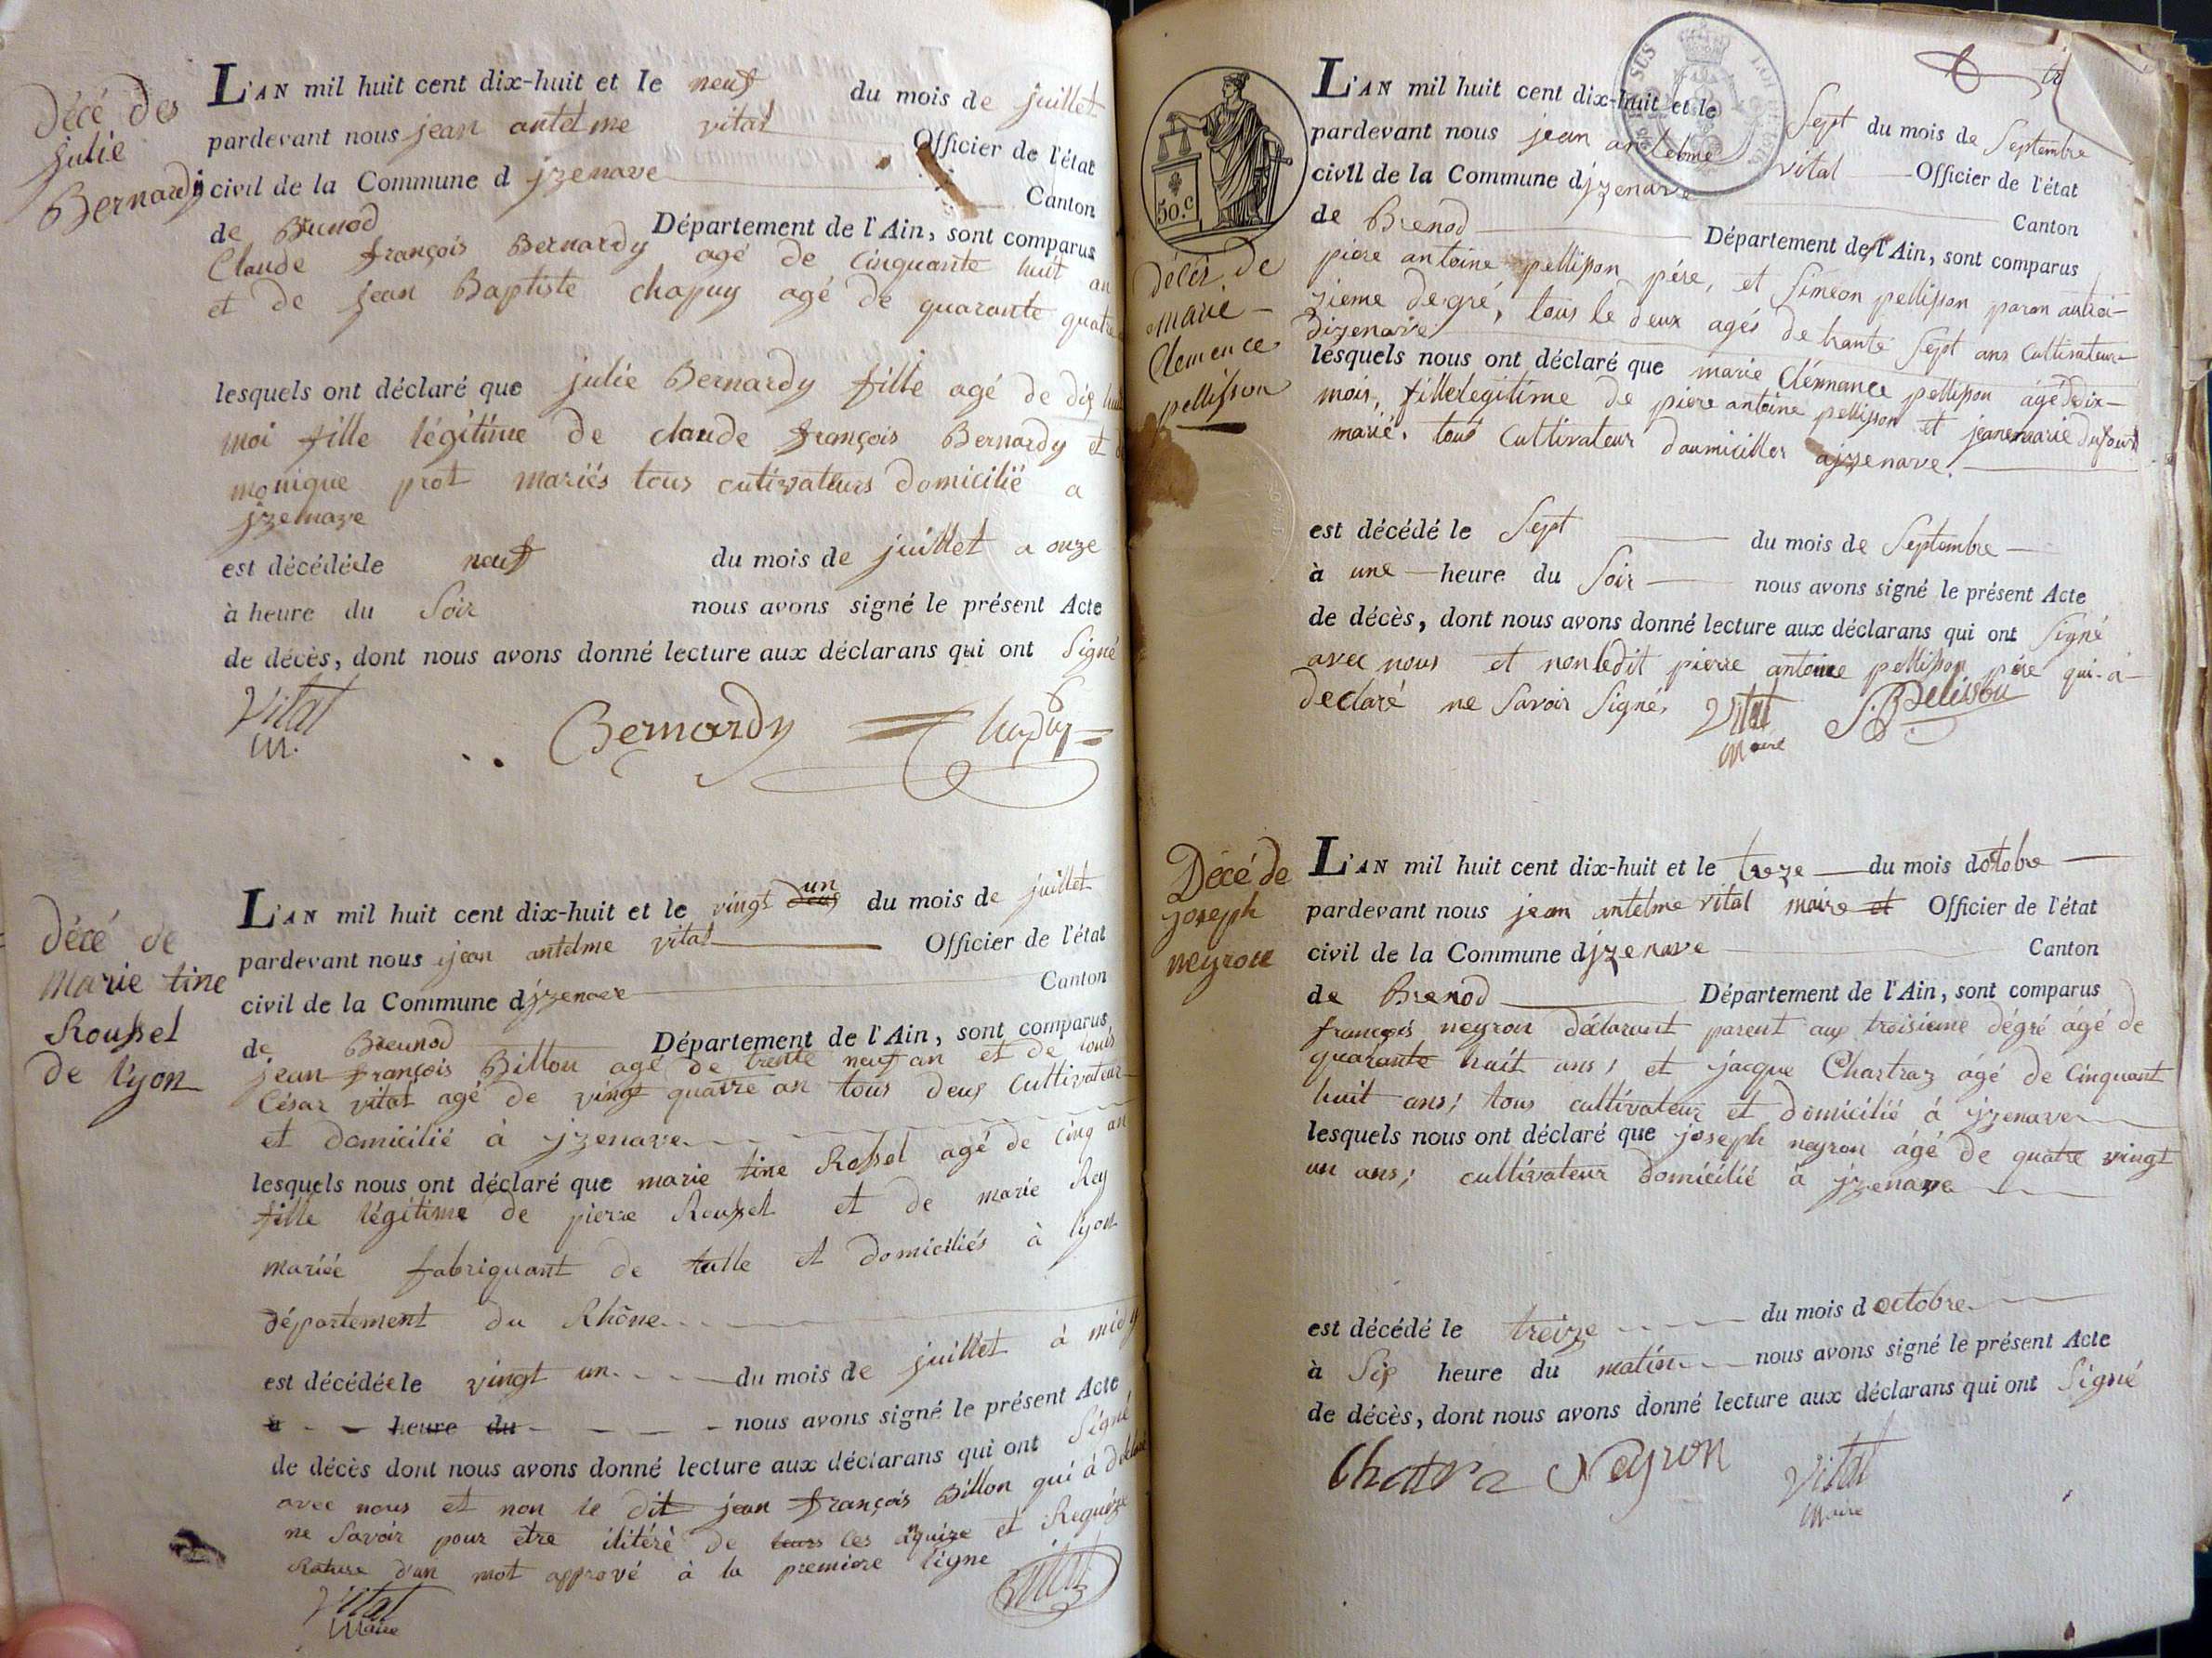 décé des
julie
Bernardy
L'AN mil huit cent dix-huit et le neuf du mois de juillet
pardevant nous jean antelme vital Officier de l'état
civil de la Commune d jzenave Canton
de Brenod Département de l'Ain, sont comparus
Claude françois Bernardy agé de Cinquante huit an
et de jean Baptiste chapuy agé de quarante quatre
lesquels ont déclaré que julie Bernardy fille agé de dix huit
moi fille légitime de claude françois Bernardy et de
monique prot mariés tous cutivateurs domicilié a
jzenave
est décédéele neuf du mois de juillet a onze
à heure du Soir nous avons signé le présent Acte
de décès, dont nous avons donné lecture aux déclarans qui ont Signé
Vital
M.
Bernardy Chapuy
décé de
marie tine
Roussel
de lyon
L'AN mil huit cent dix-huit et le vingt deus un du mois de juillet
pardevant nous jean antelme vital Officier de l'état
civil de la Commune djzenave Canton
de Breunod Département de l'Ain, sont comparus
jean françois Billon agé de trente neuf an et de louis
César vital agé de vingt quatre an tous deus Cultivateur
et domicilié à jzenave
lesquels nous ont déclaré que marie tine Rossel agé de Cinq an
fille légitime de pierre Roussel et de marie Rey
mariée fabriquant de tulle et domiciliés à lyon
département du Rhône
est décédéele vingt un du mois de juillet à midy
à heure du nous avons signé le présent Acte
de décès dont nous avons donné lecture aux déclarans qui ont Signé
avec nous et non le dit jean françois Billon qui à déclaré
ne Savoir pour etre ilitéré de les et
Rature d'un mot apprové à la premiere ligne
Vital
Vital
Maire
50.c
décés de
marie
Clemence
pellisson
L'AN mil huit cent dix-huit et le Sept du mois de Septembre
pardevant nous jean antelme vital Officier de l'état
civil de la Commune djzenave Canton
de Brenod Département de l'Ain, sont comparus
piere antoine pellisson pére, et Siméon pellisson paran autroi-
zieme degré, tous le deux agés de trante Sept ans Cultivateur
dizenave
lesquels nous ont déclaré que marie Clémance pellisson ágé de dix-
mois, fille legitime de piere antoine pellisson et jeanemarie dufour
marié, tous Cultivateur daumicilier ajzenave.
est décédé le Sept du mois de Septembre
à une heure du Soir nous avons signé le présent Acte
de décès, dont nous avons donné lecture aux déclarans qui ont Signé
avec nous et non ledit pierre antoine pellisson pére qui-a-
declaré ne Savoir Signé, Vital S. Pelisson
Maire
Décé de
joseph
neyron
L'AN mil huit cent dix-huit et le treze du mois dotobre
pardevant nous jean antelme vital maire et Officier de l'état
civil de la Commune djzenave Canton
de Brenod Département de l'Ain, sont comparus
françois neyron déclarant parent aux troisieme dégré ágé de
quarante huit ans, et jacque Chartraz ágé de Cinquant
huit ans; tous cultivateur et domicilié à jzenave
lesquels nous ont déclaré que joseph neyron ágé de quatre vingt
un ans; cultivateur domicilié à jzenave
est décédé le treize du mois d octobre
à Six heure du matin nous avons signé le présent Acte
de décès, dont nous avons donné lecture aux déclarans qui ont Signé
Chatra Neyron Vital
Maire